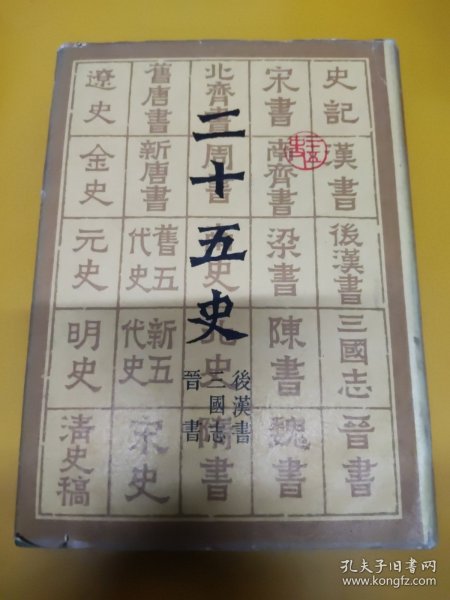 史記
漢書
後漢書
三國志
晉書
宋書
南齊書
梁書
陳書
魏書
北齊書
周書
史
北史
隋書
舊唐書
新唐書
舊五代史
新五代史
宋史
遼史
金史
元史
明史
清史稿
二十五史
後漢書
三國志
晉書
孔夫子旧书网
www.kongfz.com